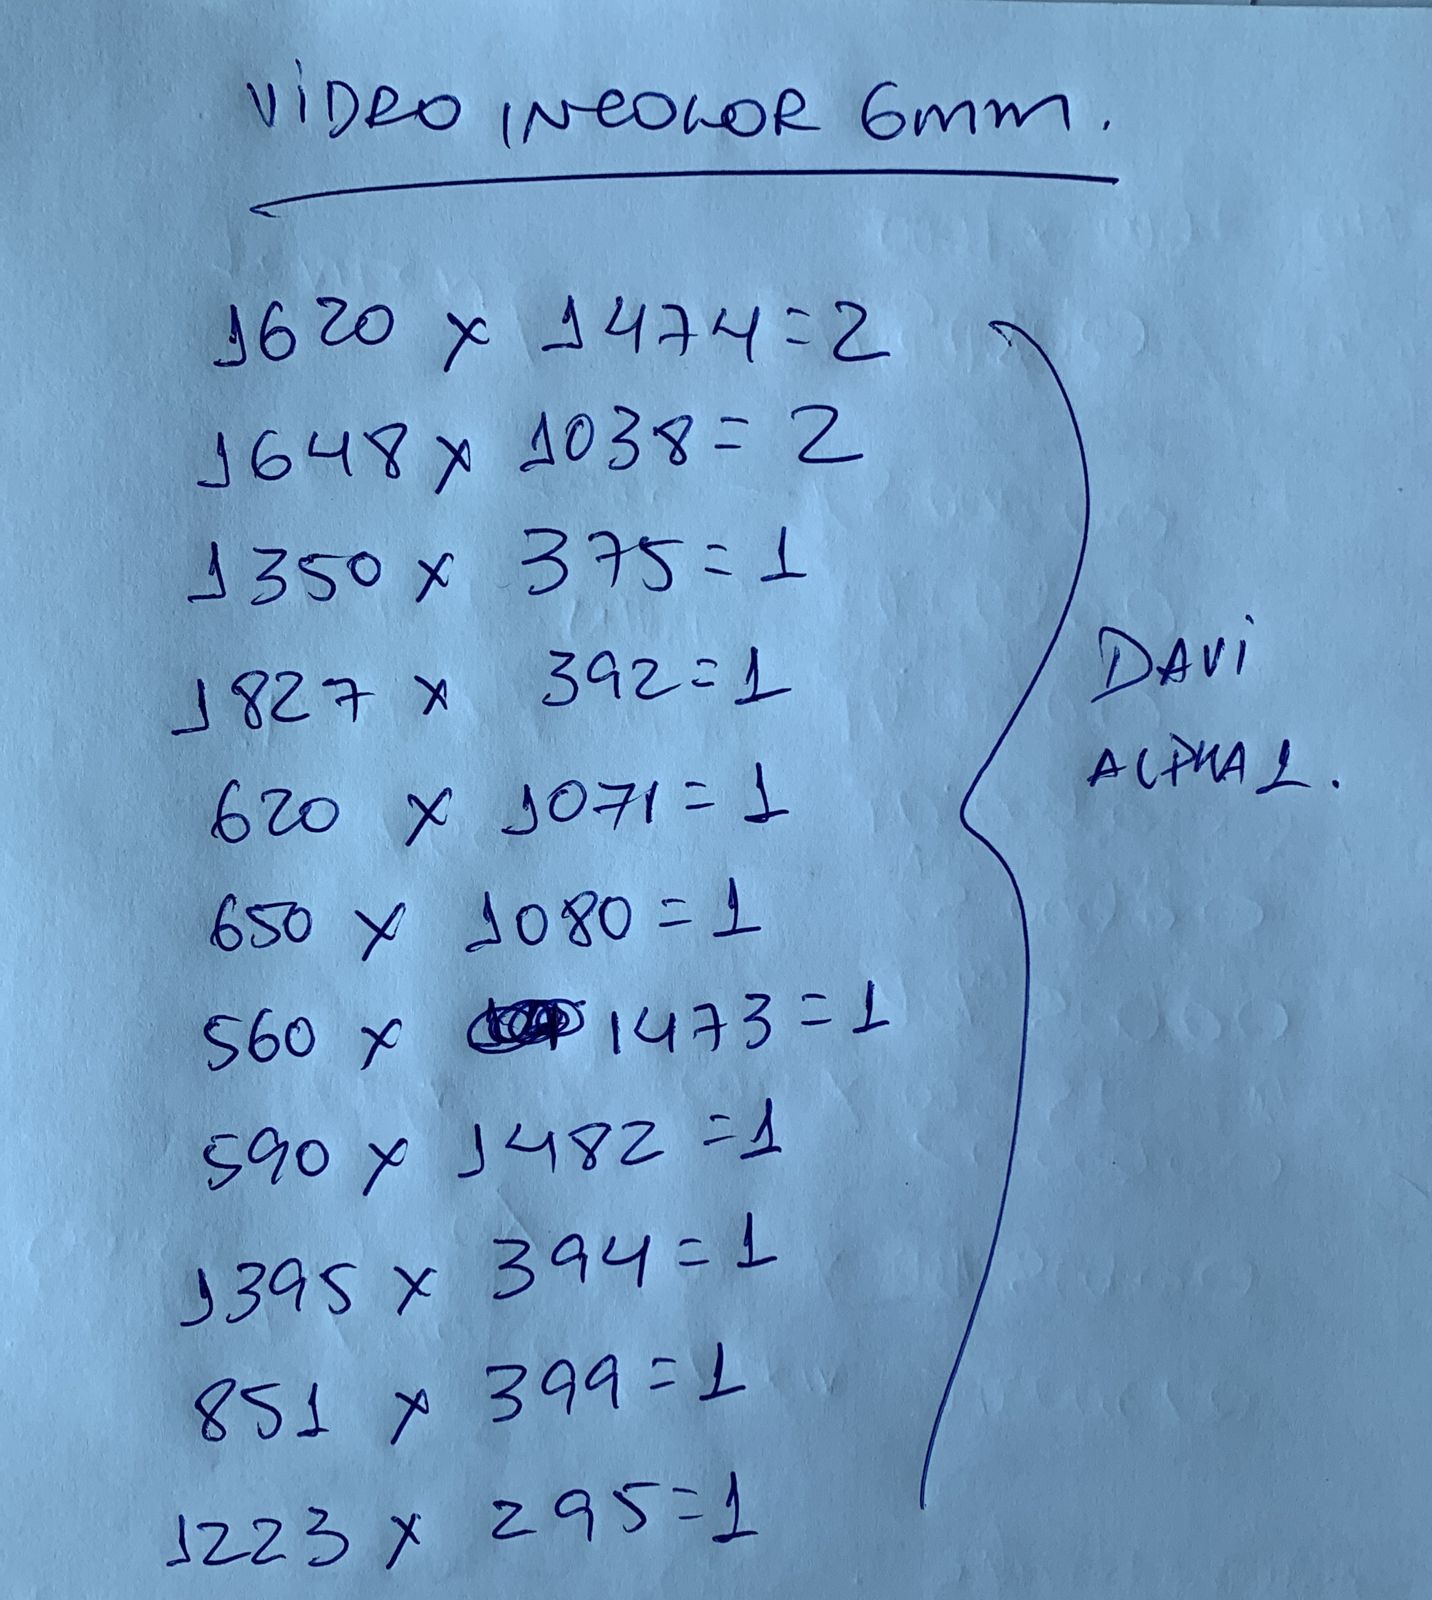 VIDRO INCOLOR 6mm.
1620 x 1474=2
1648 x 1038=2
1350 x 375=1
1827 x 392=1
620 x 1071=1
650 x 1080=1
560 x 1473=1
590 x 1482=1
1395 x 394=1
851 x 399=1
1223 x 295=1
DAVI
ALPHA 1.